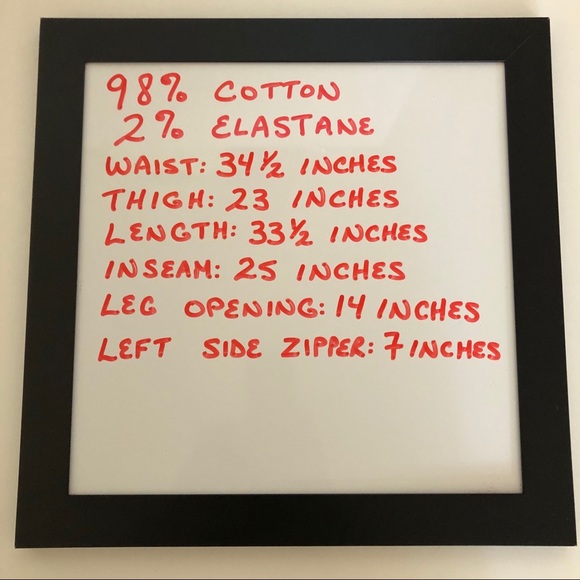 98% COTTON
2% ELASTANE
WAIST: 34 1/2 INCHES
THIGH: 23 INCHES
LENGTH: 33 1/2 INCHES
INSEAM: 25 INCHES
LEG OPENING: 14 INCHES
LEFT SIDE ZIPPER: 7 INCHES